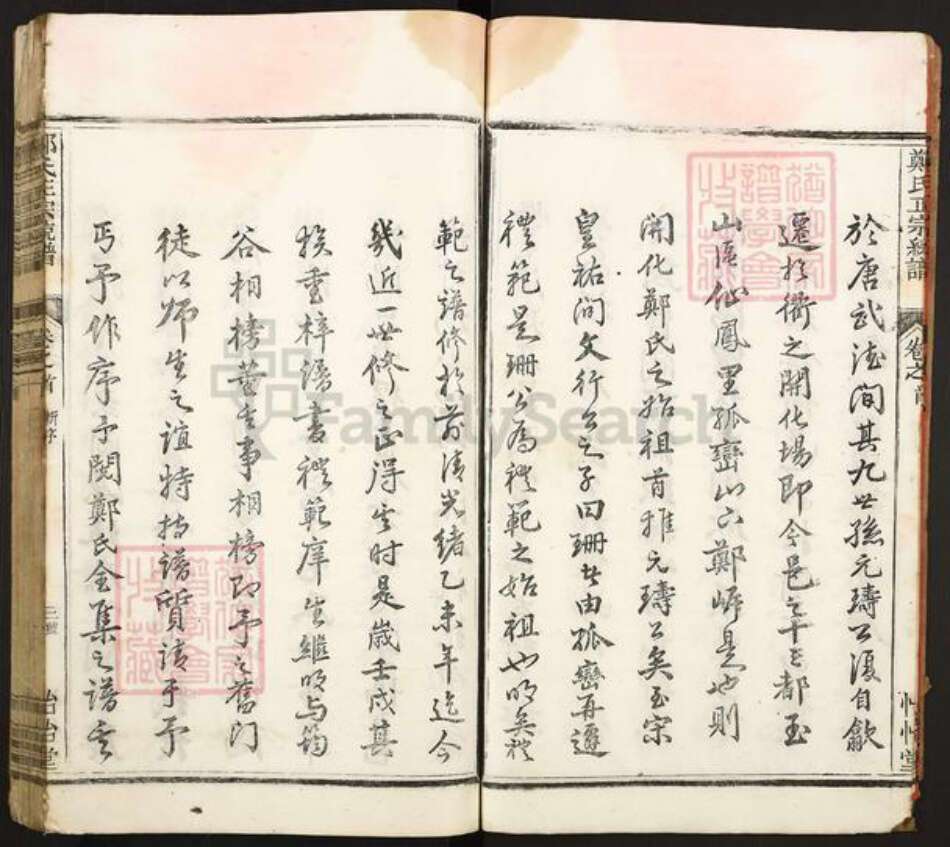 鄭氏正宗統譜
卷之首
怡怡堂
於唐武德間其九世孫元璹公復自歙
遷於衢之開化場即今邑之十三都玉
山區仙鳳里孤巒山下鄭㟁是也則
開化鄭氏之始祖首推元璹公矣至宋
皇祐間文行公之子曰珊者由孤巒再遷
禮範是珊公為禮範之始祖也明矣禮
範之譜修於前清光緒乙未年迄今
幾近一世修之正得其时是歲壬戌其
族重梓譜書禮範庠生繼明与筠
谷相榜董其事相榜即予之舊门
徒以师生之誼特持譜質請于予
丐予作序予閱鄭氏全集之譜其
鄭氏正宗統譜
卷之首
新序
怡怡堂
FamilySearch